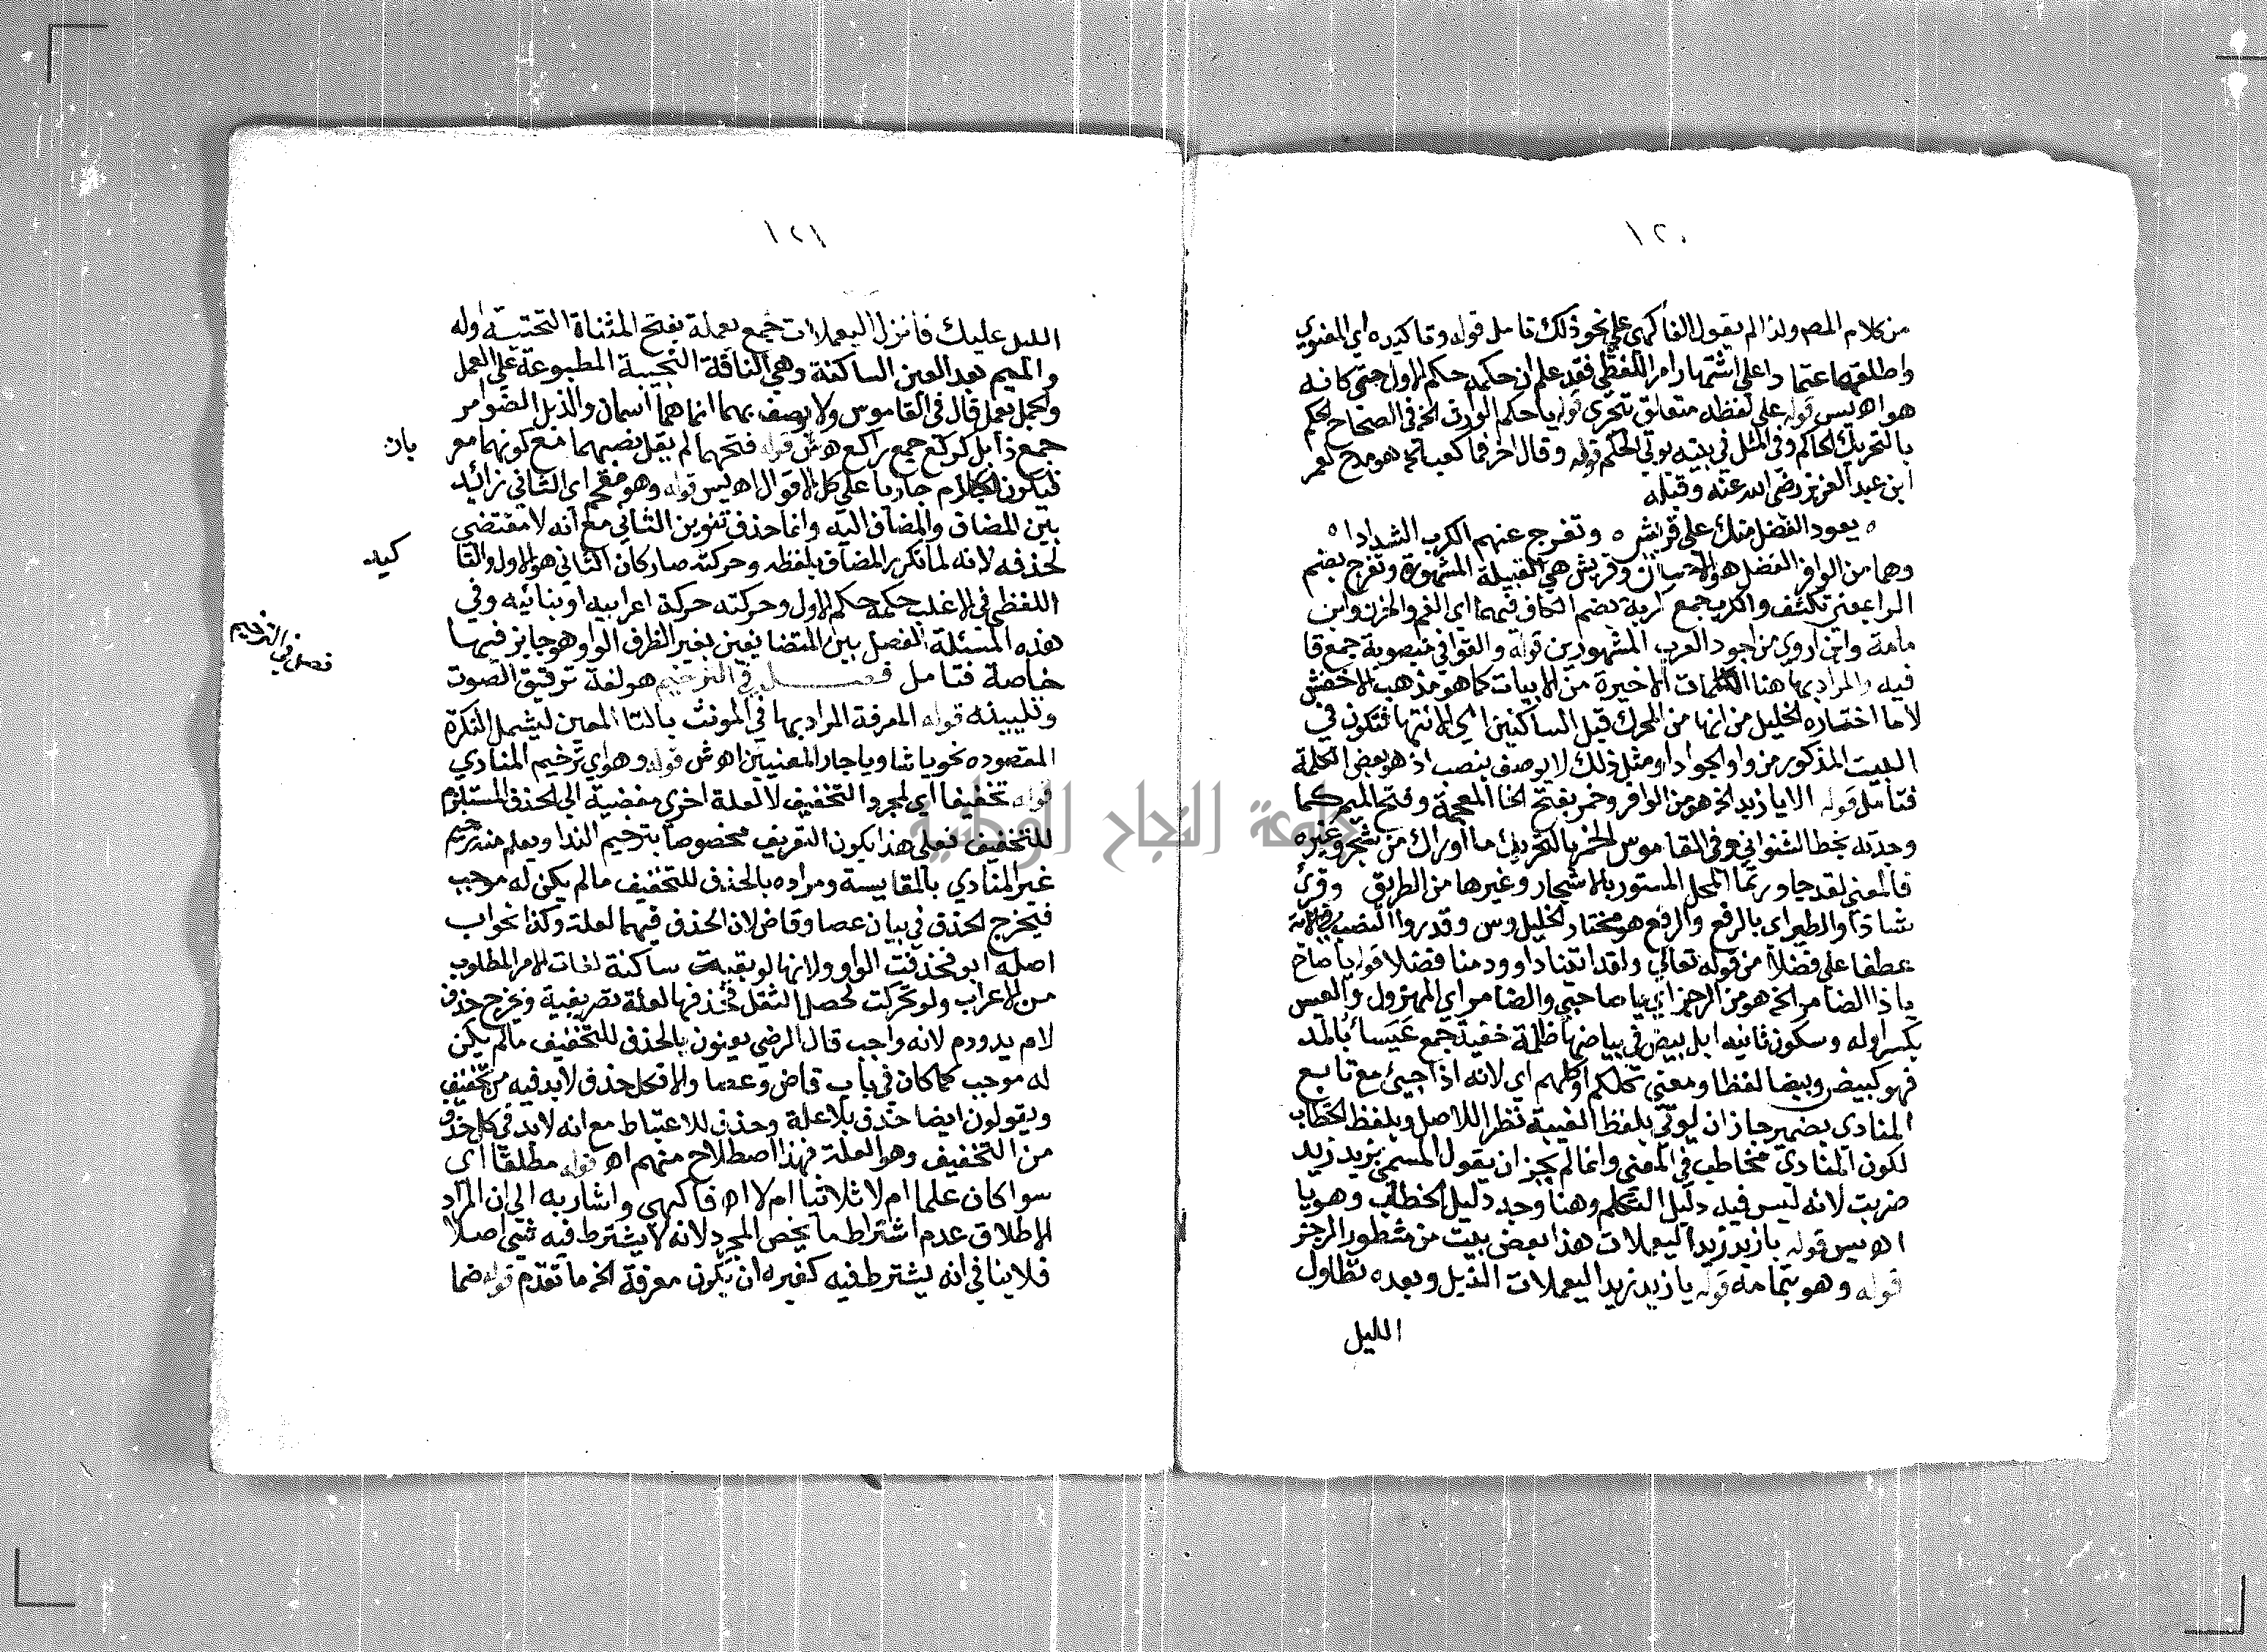 ١٢٠
من كلام المصه ولذا لم يقول الفاكهي على نحو ذلك تامل قوله وتاكيده اي المعنوي
واطلقه اعتمادا على اشتهار امر اللفظي فقد علم ان حكمه حكم الاول حتى كانه
هو اه يس قوله على لفظه متعلق بتجري قوله يا حكم الوارث الخ في الصحاح الحكم
بالتحريك الحاكم وفي المثل في بيته يوتي الحكم قوله وقال اخر فما كعب الخ هو مدح لعمر
ابن عبد العزيز رضى الله عنه وقبله
ه يعود الفضل منك على قريش ه وتفرج عنهم الكرب الشدادا ه
وهما من الوافر الفضل هو الاحسان وقريش هي القبيلة المشهورة وتفرج بضم
الرا بمعنى تكشف والكرب جمع كربة بضم الكاف فيهما اي الغم والحزن وابن
مامة وابن اروى من اجود العرب المشهورين قوله والقوافي منصوبة جمع قا
فيه والمراد بها هنا الكلمات الاخيرة من الابيات كما هو مذهب الاخفش
لا ما اختاره الخليل من انها من المحرك قبل الساكنين الى الانتها فتكون في
البيت المذكور من واو الجوادا ومثل ذلك لا يوصف بنصب اذ هو بعض الكلمة
فتامل قوله الا يا زيد الخ هو من الوافر وخمر بفتح الخا المعجمة وفتح الميم كما
وجدته بخط الشنواني وفي القاموس الخمر بالتحريك ما اوراك من شجر وغيره
فالمعنى لقد جاورتما المحل المستور بالاشجار وغيرها من الطريق وقرئ
شاذا والطير اي بالرفع والرفع هو مختار الخليل وس وقدروا النصب
عطفا على فضلا من قوله تعالى ولقد اتينا داوود منا فضلا قوله يا صاح
يا ذا الضامر الخ هو من الرجز اي يا صاحبي والضامر اي المهزول والعيس
بكسر اوله وسكون ثانيه ابل بيض في بياضها ظلمة خفية جمع عيساء بالمد
فهو كبيض وبيضا لفظا ومعنى تخلكم او كلهم اي لانه اذا جيئ مع تابع
المنادى بضمير جاز ان يوتي بلفظ الغيبة نظرا للاصل وبلفظ الخطاب
لكون المنادى مخاطب في المعنى وانما لم يجز ان يقول المسمى بزيد زيد
ضربت لانه ليس فيه دليل التكلم وهنا وجد دليل الخطاب وهو يا
اه يس قوله يا زيد زيد اليعملات هذا بعض بيت من مشطور الرجز
قوله وهو بتمامه قوله يا زيد زيد اليعملات الذبل وبعده تطاول
الليل
١٢١
الليل عليك فانزل اليعملات جمع يعملة بفتح المثناة التحتية اوله
والميم بعد العين الساكنة وهي الناقة النجيبة المطبوعة على العمل
والجمل يعمل قال في القاموس ولا يوصف بهما انما هما اسمان والذبل الضوامر
جمع ذابل كركع جمع راكع ه ش قوله فتحهما لم يقل نصبهما مع كونهما معر
بان
فيكون الكلام جاريا على كل الاقوال اه يس قوله وهو مقحم اي الثاني زائد
بين المضاف والمضاف اليه وانما حذف تنوين الثاني مع انه لا مقتضى
لحذفه لانه لما تكرر المضاف بلفظه وحركته صار كان الثاني هو الاول والتا
كيد
اللفظي في الاغلب حكمه حكم الاول وحركته حركة اعرابيه او بنائيه وفي
هذه المسئلة الفصل بين المتضايفين بغير الظرف الواو هو جايز فيها
خاصة فتامل فصل في الترخيم هو لغة ترقيق الصوت
فصل في الترخيم
وتليينه قوله المعرفة المراد بها في المونث بالتا المعين ليشمل النكرة
المقصوده نحو يا شا ويا جار المعنيين اه ش قوله وهو اي ترخيم المنادي
قوله تخفيفا اي لمجرد التخفيف لا لعلة اخرى مفضية الى الحذف المستلزم
للتخفيف فعلى هذا يكون التعريف مخصوصا بترخيم الندا ويعلم منه ترخيم
غير المنادي بالمقايسة ومراده بالحذف للتخفيف ما لم يكن له موجب
فيخرج الحذف في بيان عصا وقاض لان الحذف فيهما لعلة وكذا نحو اب
اصله ابو فحذفت الواو ولانها لو بقيت ساكنة لفات الامر المطلوب
من الاعراب ولو تحركت لحصل الثقل فحذفها لعلة تصريفية ويخرج حذف
لام يد ودم لانه واجب قال الرضي يعنون بالحذف للتخفيف ما لم يكن
له موجب كما كان في باب قاض وعصا والا فكل حذف لا بد فيه من تخفيف
ويقولون ايضا حذف بلا علة وحذف للاعتباط مع انه لا بد في كل حذف
من التخفيف وهو العلة فهذا اصطلاح منهم اه قوله مطلقا اي
سوا كان علما ام لا ثلاثيا ام لا اه فاكهي واشار به الى ان المراد
الاطلاق عدم اشتراط ما يخص المجرد لانه لا يشترط فيه شيئ اصلا
فلا ينافي انه يشترط فيه كغيره ان يكون معرفة الخ ما تقدم قوله ضما
جامعة النجاح الوطنية